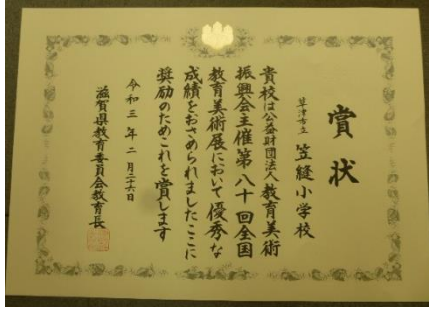 賞状
草津市立 笠縫小学校
貴校は公益財団法人教育美術
振興会主催第八十回全国
教育美術展において優秀な
成績をおさめられましたここに
奨励のためこれを賞します
令和三年二月二十六日
滋賀県教育委員会教育長